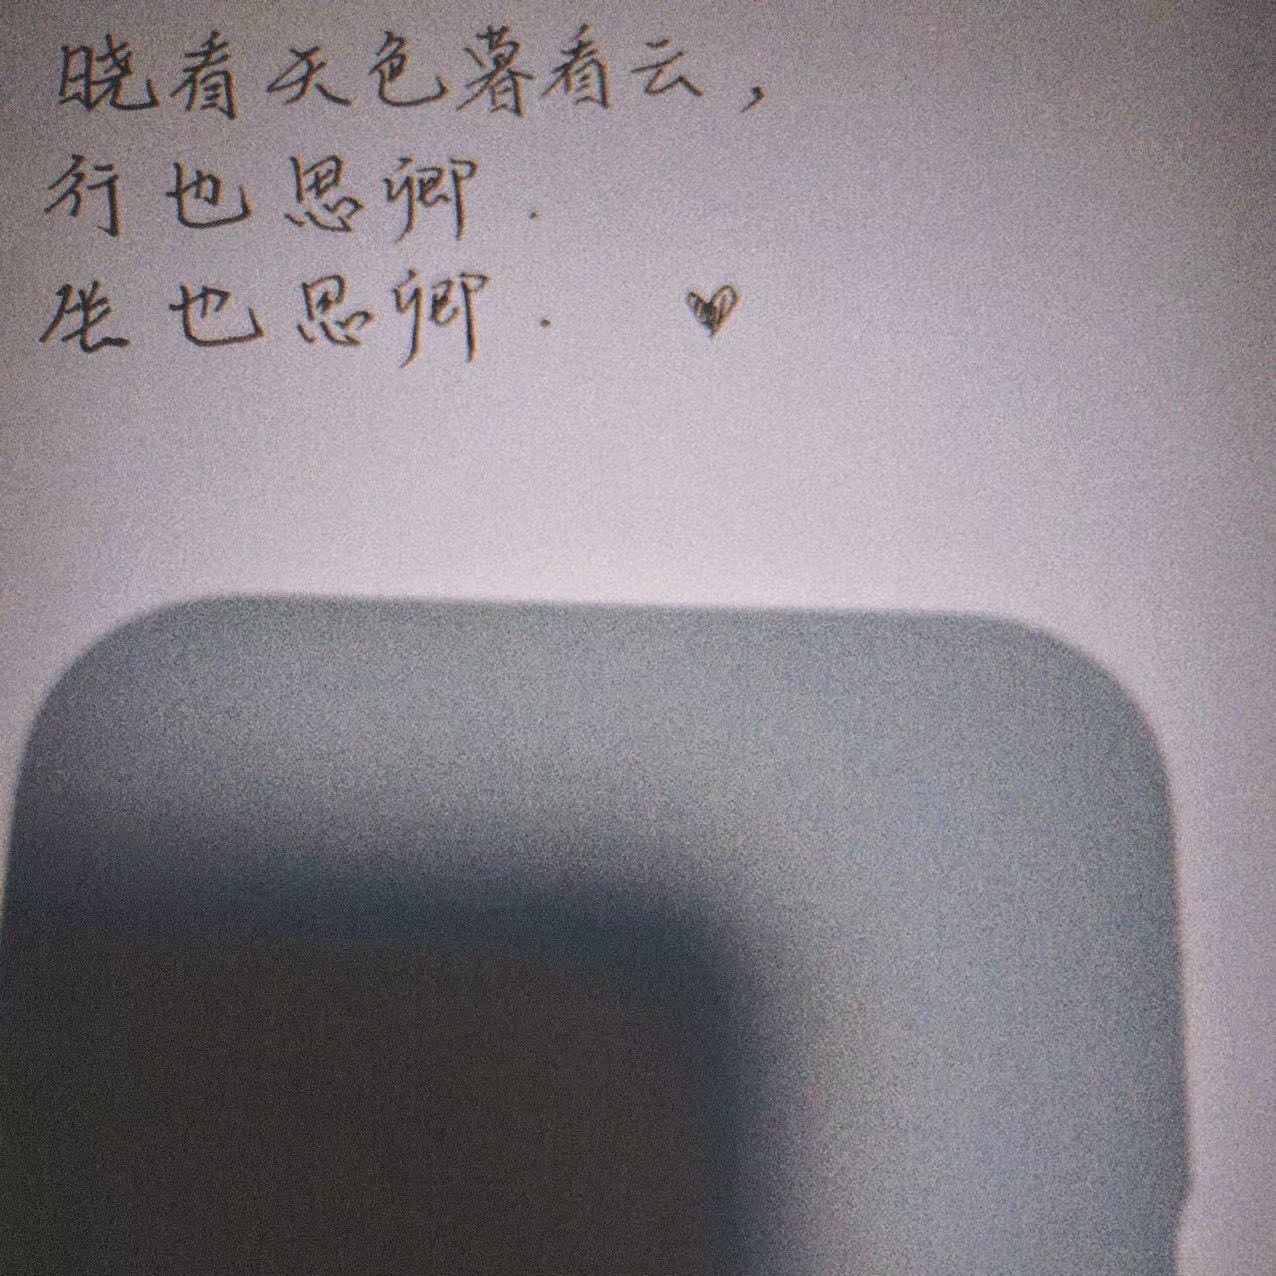 晓看天色暮看云，
行也思卿.
坐也思卿.